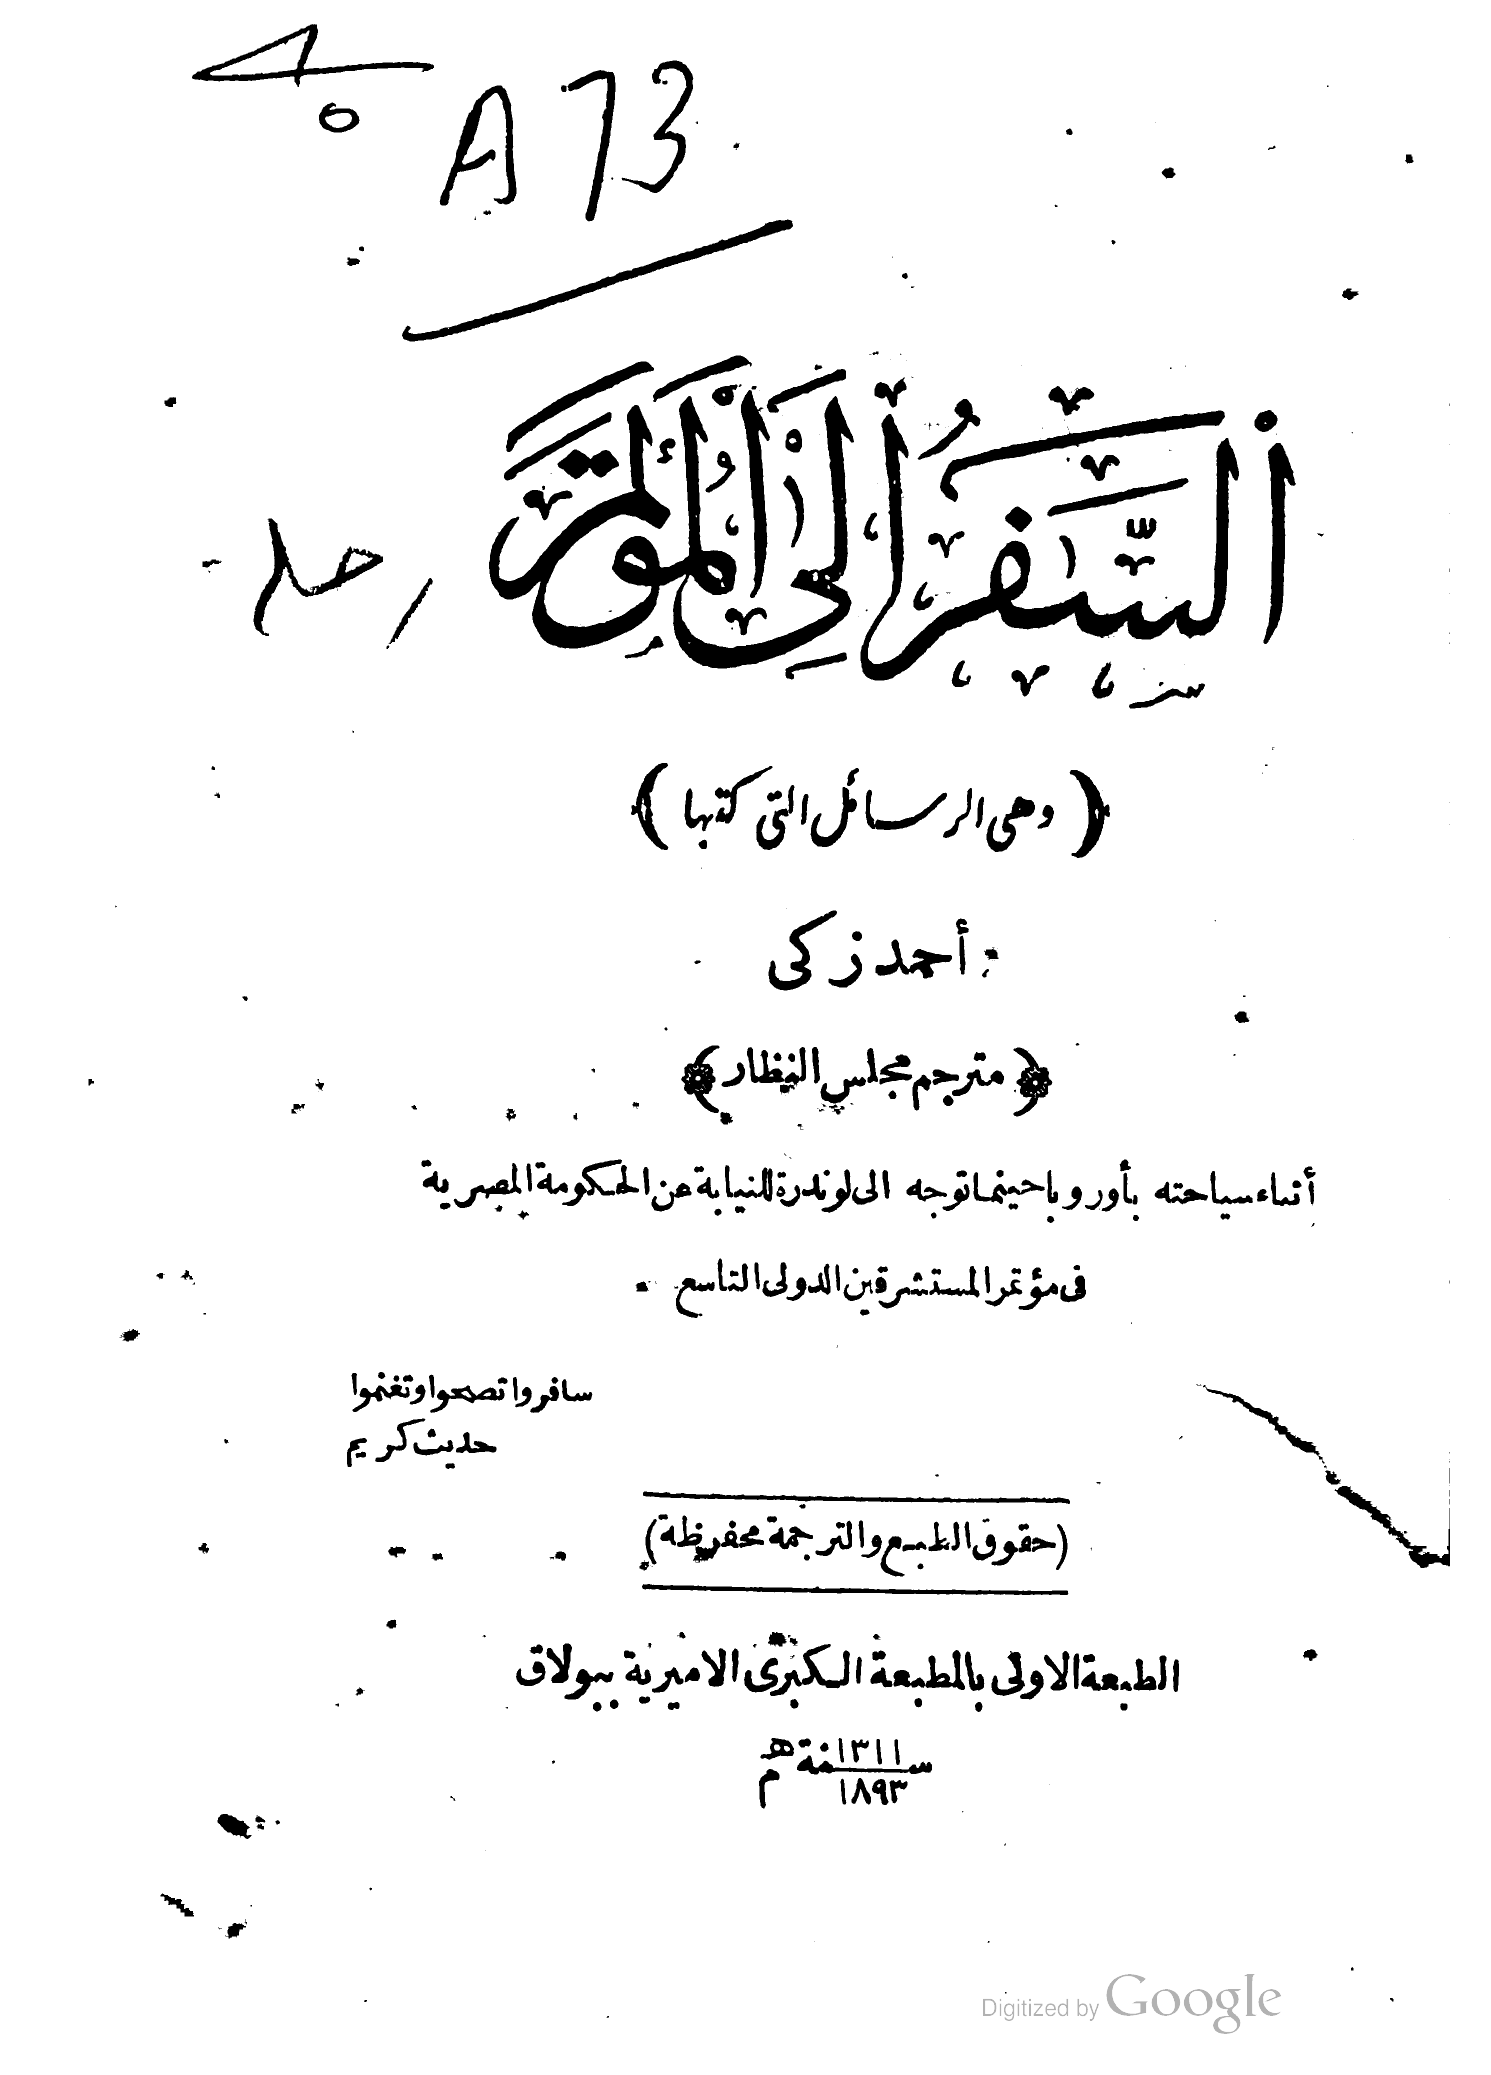 A 73
السَّفَرُ إِلَى الْمُؤْتَمَرِ
(وهى الرسائل التى كتبها)
أحمد زكى
(مترجم مجلس النظار)
أثناء سياحته بأوروبا حينما توجه الى لوندرة للنيابة عن الحكومة المصرية
فى مؤتمر المستشرقين الدولى التاسع
سافروا تصحوا وتغنموا
حديث كريم
(حقوق الطبع والترجمة محفوظة)
الطبعة الاولى بالمطبعة الكبرى الاميرية ببولاق
سنة ١٣١١ هـ
١٨٩٣ م
Digitized by Google